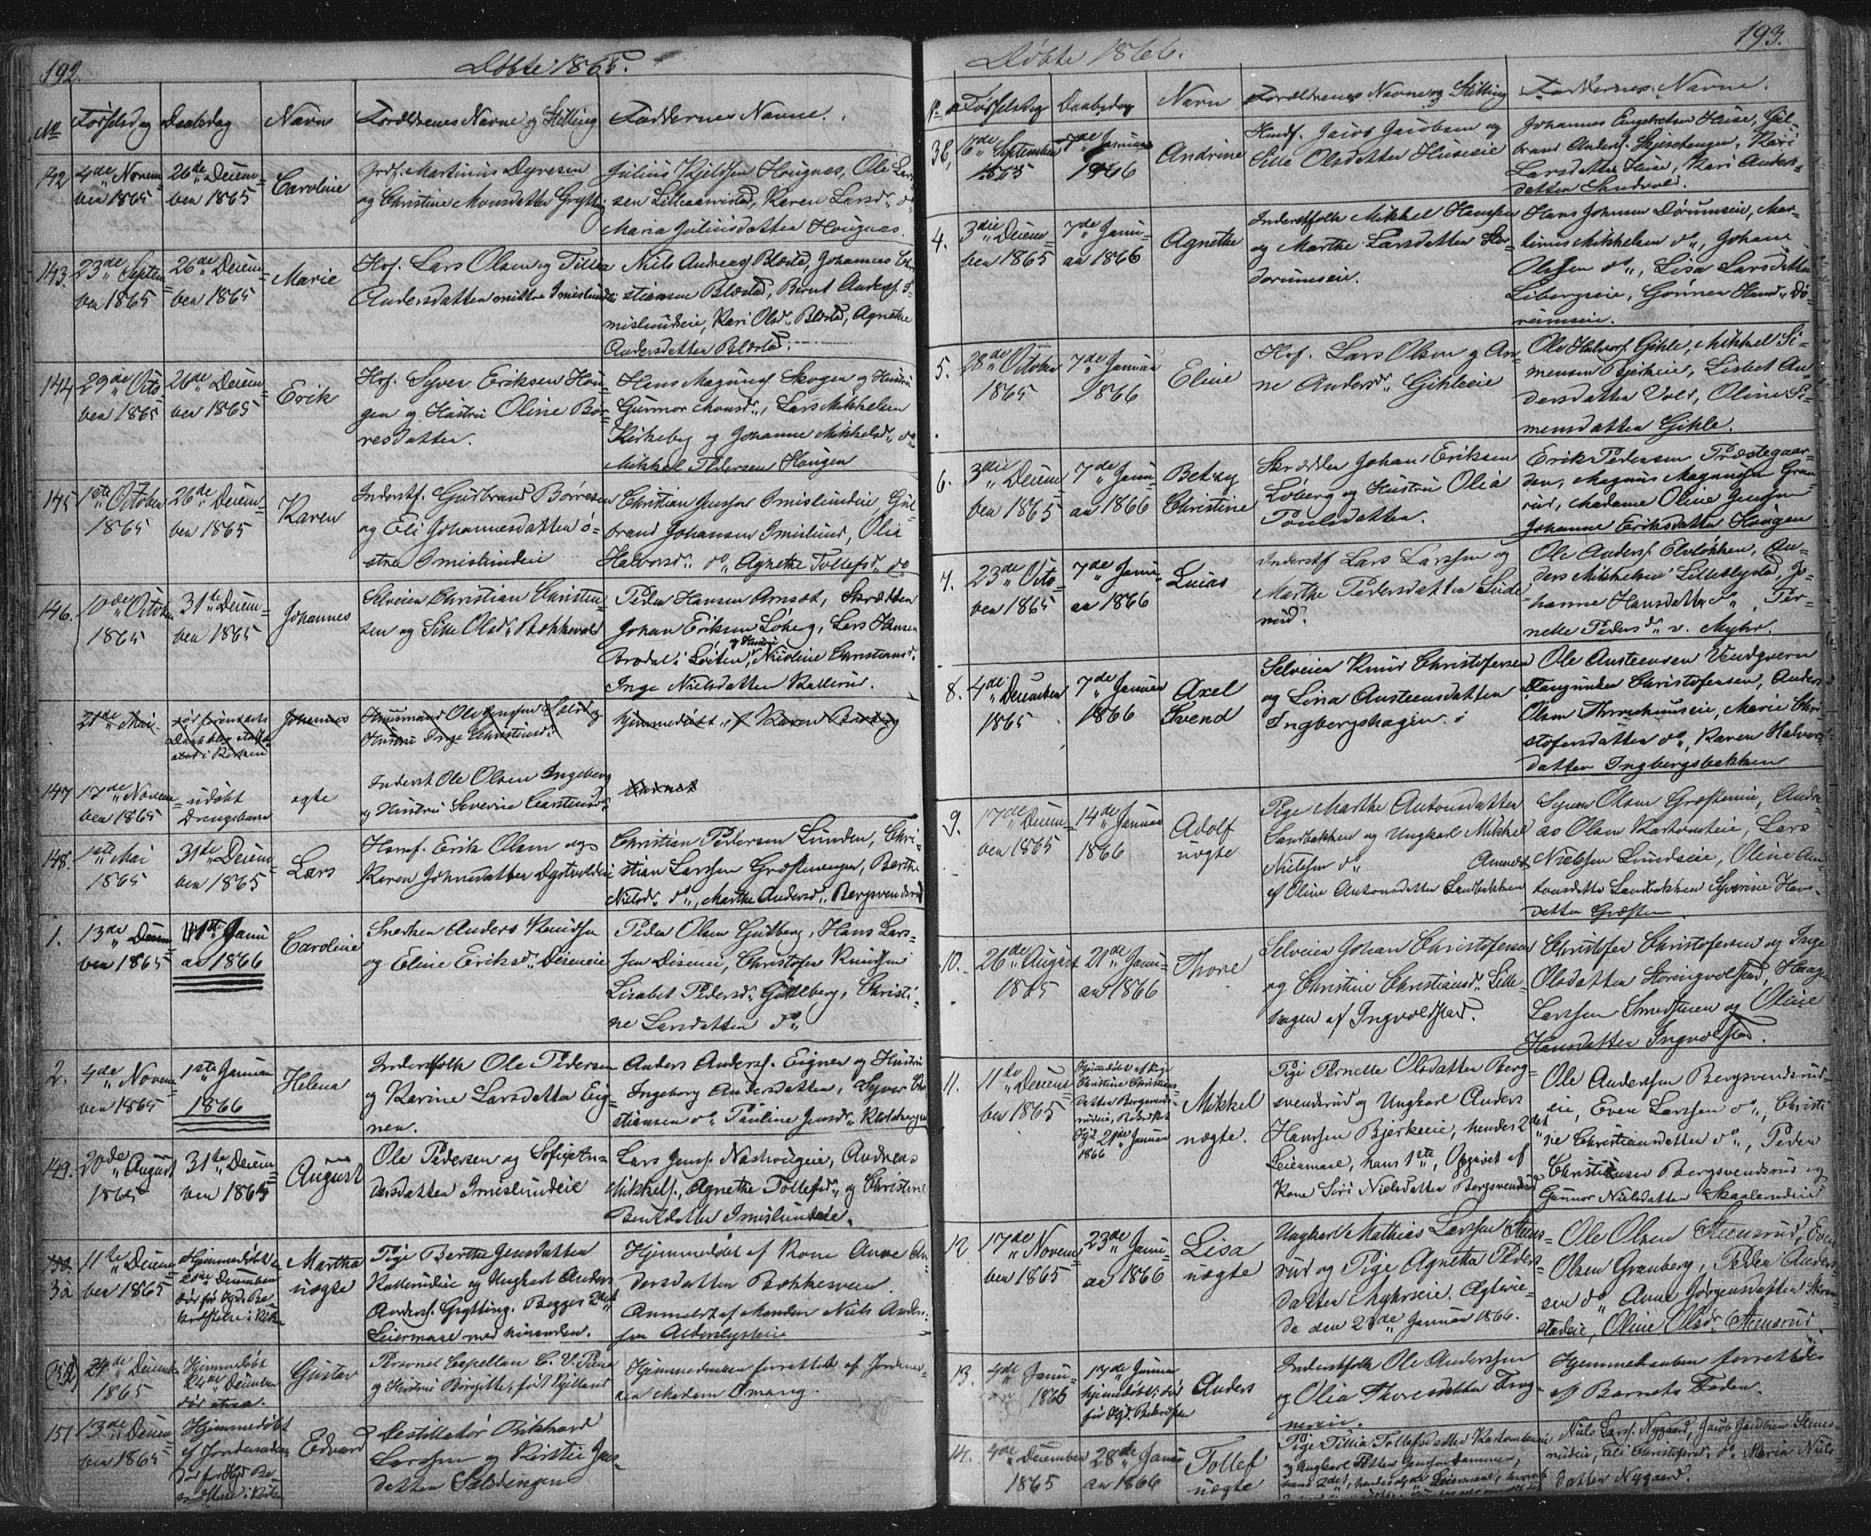 192.
Døbte 1865.
No
Fødselsdag
Daabsdag
Navn
Forældrenes Navne og Stilling
Faddernes Navne.
142
4de Novem-
ber 1865
26de Decem-
ber 1865
Caroline
Martinius Dyresen
og Christine Monsdatter Grytting
Julius Kjeldsen Hougnes, Ole Lar-
sen Lilleaarvistad, Karen Larsd. do
Maria Juliusdatter Hougnes.
143.
23de Septem-
ber 1865
26de Decem-
ber 1865
Marie
Hof. Lars Olsen og Tilla
Andersdatter mittre Imislundeie
Niels Andreas Blæstad, Johannes Chri-
stiansen Blæstad, Bernt Anders. I-
mislundeie, Kari Olsd. Blæstad, Agnethe
Andersdatter Blæstad.
144
29de Octo-
ber 1865
26de Decem-
ber 1865
Erik
Hof. Syver Eriksen Hou-
gen og Hustru Oline Bør-
resdatter.
Hans Magnus. Skogen og Hustru
Gunnor Monsd., Lars Mikkelsen
Kirkeby og Johanne Mikkelsd. do
Mikkel Pedersen Hougen
145
1ste October
1865
26de Decem-
ber 1865
Karen
Inderstf. Gudbrand Børresen
og Eli Johannesdatter ø-
stre Imislundeie
Christian Jensen Imislundeie, Gul-
brand Johansen Imislund, Olia
Halvorsd. do, Agnethe Tollefsd. do
146.
10de October
1865
31te Decem-
ber 1865
Johannes
Selveier Christian Christian-
sen og Sille Olsd. Bækkevold
Peder Hansen Arnset, Skrædder
Johan Eriksen Løberg, Lars Hansen
og Hustru
Brodal i Løiten, Nicoline Christiansd.
Inge Nielsdatter Kallerud.
21de Mai
Johannes
147
17de Novem-
ber 1865
udøbt
Drengebarn
ægte
Inderst Ole Olsen Ingeberg
og Hustru Severine Carstensd.
148.
1ste Mai
1865
31te Decem-
ber 1865
Lars
Husf. Erik Olsen og
Karen Johnsdatter Dystvoldeie
Christian Pedersen Lunden, Chri-
stian Larssen Grøftenengen, Berthe
Nilsd. do, Marthe Andersd. Bergsvendsrud
1.
13de Decem-
ber 1865
1ste Janu
ar 1866
Caroline
Snedker Anders Knudsen
og Eline Eriksd. Diseneie
Peder Olsen Gudberg, Hans Lars-
sen Diseneie, Christofer Knudsen
Lisabet Pedersd. Gullberg, Christi-
ne Larsdatter do
2.
4de Novem-
ber 1865
1ste Januar
1866
Helena
Inderstfolk Ole Pedersen
og Karine Larsdatter Eig-
neren.
Anders Anders. Eigner og Hustru
Ingeborg Andersdatter, Syver Chri-
stiansen do, Pauline Jensd.
149.
20de August
1865
31te Decem-
ber 1865
August
Ole Pedersen og Sofie An-
dersdatter Imislundeie
Lars Jens. Nashougeie, Andreas
Mikkels., Agnethe Tollefsd. og Christine
Berntdatter Imislundeie.
3a
11te Decem-
ber 1865
Hjemmedøbt
Martha
uægte
Pige Berthe Jensdatter
Kallerudeie og Ungkarl Anders
Anders. Grytting. Begges 2det
Leiermaal med hinanden.
Hjemmedøbt af Kone Anne An-
dersdatter Bækkesveen.
Anmeldt af Manden Niels Ander-
sen Alderslysteie
24de Decembr
1865
Hjemmedøbt
24de December
Gustav
Personel Capellan C. V. Piene
og Hustru Birgitte, født Kjelland
Hjemmedaaben forrettet af Jordemo-
der Madam Omang.
151
13de Decem-
ber 1865
Hjemmedøbt
af Jordemoder
Edvard
Destillatør Rikhard
Larssen og Kirstie Jen-
datter Saldengen
193.
Døbte 1866.
Fødselsdag
Daabsdag
Navn
Forældrenes Navne og Stilling
Faddernes Navne.
3b,
6te September
1865
7de Januar
1866
Andrine
Husf. Jacob Jacobsen og
Sille Olsdatter Huseeie
Johannes Engebretsen Huse, Gul-
brand Anders. Skjeset engen, Kari
Larsdatter Huse, Kari Anders-
datter Sandvold.
4.
3die Decem-
ber 1865
7de Janu-
ar 1866
Agnethe
Inderstfolk Mikkel Hansen
og Marthe Larsdatter Sto-
Dørumseie.
Hans Johnsen Dørumseie, Mar-
tinus Mikkelsen do, Johan
Olssen do, Lisa Larsdatter
Libergseie, Gønner Hansd. Dø-
rumseie.
5.
28de October
1865
7de Januar
1866
Eline
Hof. Lars Olsen og An-
ne Andersd. Gihleeie
Ole Halvors. Gihle, Mikkel Si-
mensen Bjerkeie, Lisbet An-
dersdatter Vold, Oline Si-
mensdatter Gihle.
6.
3die Decem
ber 1865
7de Janu-
ar 1866
Betzy
Christine
Skrædder Johan Eriksen
Løberg og Hustru Olia
Poulsdatter.
Erik Pedersen Præstegaar-
den, Magnus Magnussen Gran-
rud, Madame Oline Jenssen
Johanne Eriksdatter Hougen
7.
23de Octo-
ber 1865
7de Janu-
ar 1866
Lucas
Inderstf. Lars Larssen og
Marthe Pedersdatter Linde-
rud.
Ole Anders. Elvløkken, An-
ders Mikkelsen Lillelysted, Jo-
hanne Hansdatter do, Per-
nelle Peders. v. Myhr.
8.
4de December
1865
7de Januar
1866
Axel
Svend
Selveier Knud Christofersen
og Lina Austeensdatter
Ingbergshagen.
Ole Austeensen Vendqvern
Dragunder Christofersen, Anders
Olsen Thronehuuseie, Marie Chri-
stofersdatter do, Karen Halvors-
datter Ingbergsbakken
9.
17de Decem-
ber 1865
14de Januar
1866
Adolf
uægte
Pige Marthe Antonsdatter
Sandbakken og Ungkarl Mikkel
Nielsen do. Anmeldt
af Eline Antonsdatter Sandbakken
Syver Olsen Grøfteneie, Andre-
as Olsen Kartomteie, Lars
Nielsen Lundseie, Oline An-
tonsdatter Sandbakken Syverine Hans-
datter Grøften.
10.
26de August
1865
21de Janu-
ar 1866
Thore
Selveier Johan Christofersen
og Christine Christiansd. Lille-
hagen af Ingvoldstad.
Christofer Christofersen og Inge
Olsdatter Storingvoldstad, Haagen
Larssen Smedstuen og Oline
Hansdatter Ingvoldstad.
11.
11te Decem-
ber 1865
Hjemdøbt af Pige
Christine Christians-
datter Bergsvends-
rudeie,
21de Januar
1866
Mikkel
uægte.
Pige Pernelle Olsdatter Berg-
svendsrud og Ungkarl Anders
Hanssen Bjerkeeie, hendes 2det
Leiermaal, hans 1ste, Opgivet af
Kone Siri Nielsdatter Bergsvendsrud
Ole Anderssen Bergsvendsrud-
eie, Even Larssen do, Christi-
ne Christiansdatter do, Peder
Christiansen Bergsvendsrud og
Gunnor Nielsdatter Skaalerudeie
12
17de Novem
ber 1865
23de Janu-
ar 1866
Lisa
uægte
Ungkarl Mathias Larssen Steens-
rud og Pige Agnethe Peders-
datter Myhrseie. Ægtevie-
de den 23de Januar 1866.
Ole Olsen Steensrud, Even
Olsen Granberg, Peder Anders-
sen do, Anne Jørgensdatter
stadeie, Oline Olsd. Steensrud
13.
4de Janu-
ar 1866
17de Januar
hjemmedøbt; død
før
Anders
Inderstfolk Ole Anderssen
og Olia Thoresdatter Frog-
nereie.
Hjemmedaaben forrettedes
af Barnets Fader.
14.
4de December
1865
28de Janu-
ar 1866
Tollef
uægte
Pige Tillia Tollefsdatter Kartomteeie
og Ungkarl Petter Jenssen
Niels Lars. Nygaard, Jacob Jacobsen Steens-
rudeie, Eli Christofersd. do, Maria Niels-
datter Nygaard.